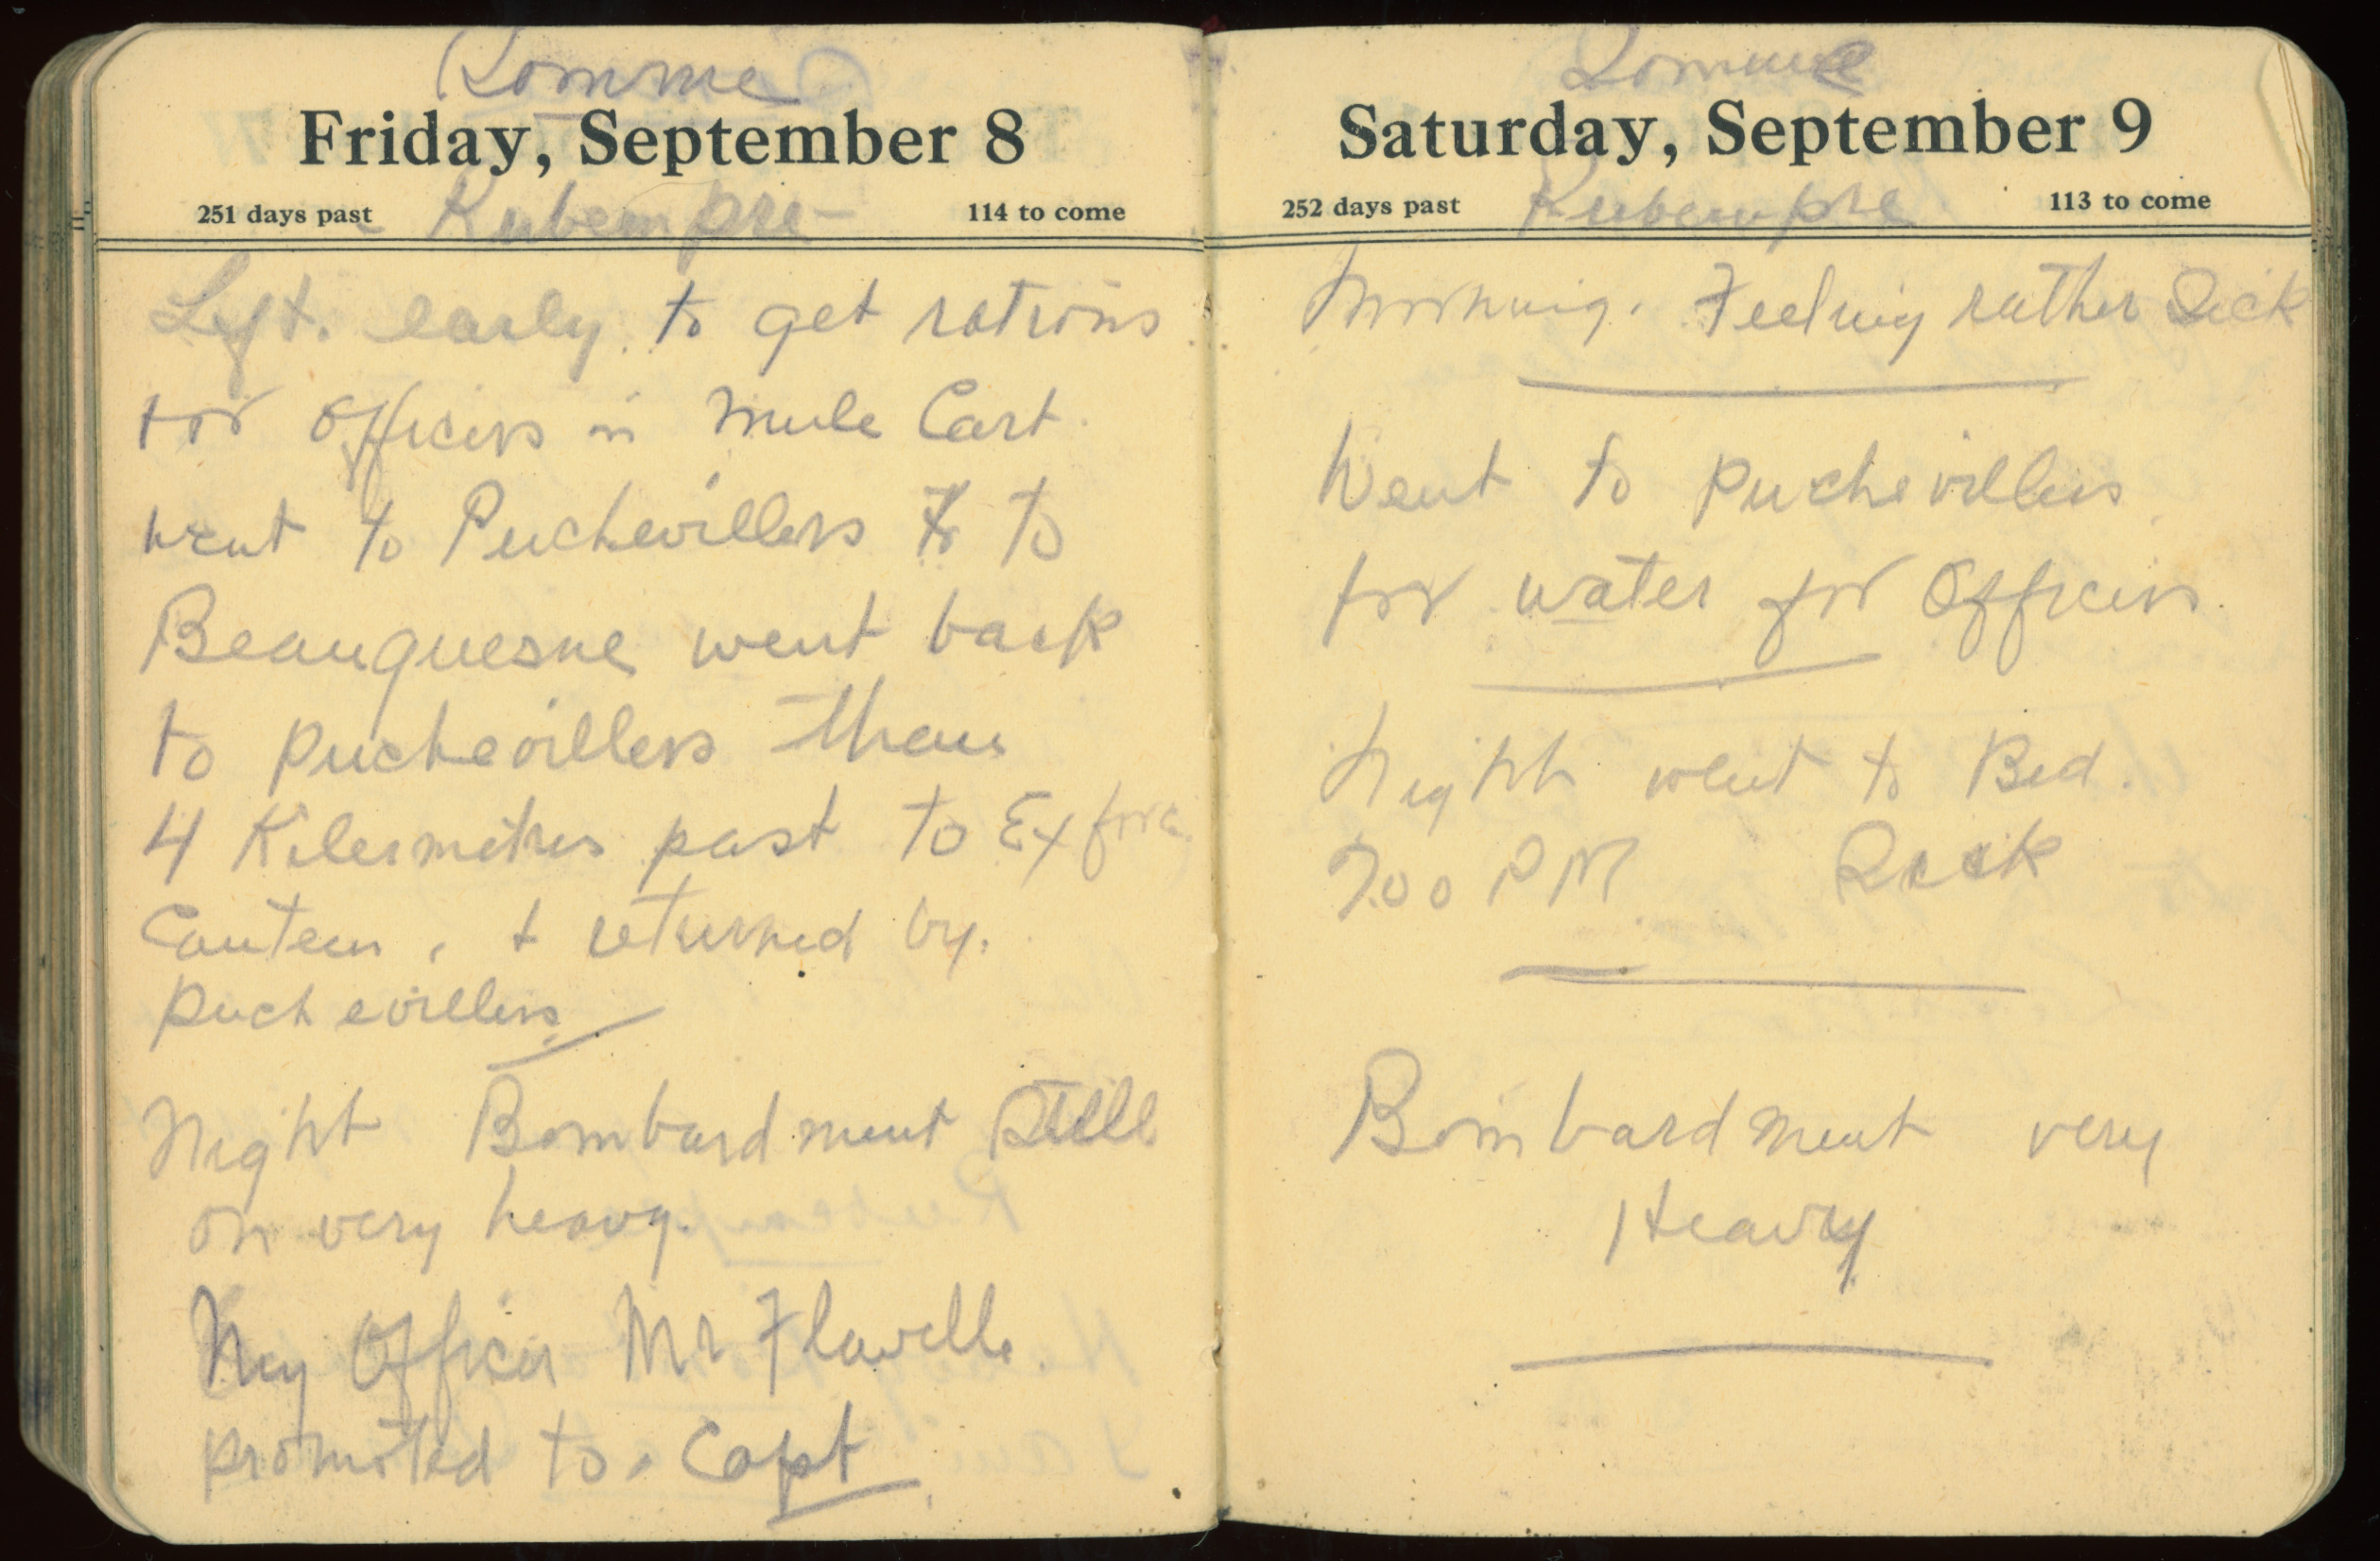 Somme
Friday, September 8
251 days past Rubempre 114 to come
Left. early. to get rations
for Officers in Mule Cart.
went to Puchevillers & to
Beauquesne went back
to Puchevillers than
4 Kilermetres past to Ex force
Canteen, & returned by.
Puchevillers
Night Bombardment Still
on very heavy.
My Officer Mr Flavelle.
promoted to. Capt
Somme
Saturday, September 9
252 days past Rubempre 113 to come
Morning. Feeling rather Sick
Went to Puchevillers
for water for Officers.
Night went to Bed.
7.00 PM. Sick
Bombardment very
Heavy